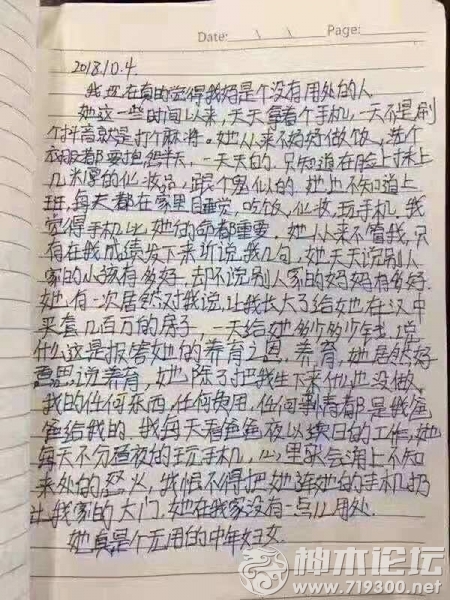 Date: \ \ Page:
2018.10.4.
我现在真的觉得我妈是个没有用处的人
她这一些时间以来,天天拿着个手机,一天不是刷
个抖音就是打个麻将。她从来不好好做饭,洗个
衣服都要抱怨半天,一天天的,只知道在脸上抹上
几米厚的化妆品,跟个鬼似的。地上不知道上
班,每天都在家里目睡觉,吃饭,化妆,玩手机,我
觉得手机比她的命都重要。她从来不管我,只
有在我成绩发下来听说我几句,她天天说别人
家的小孩有多好,却不说别人家的妈妈有多好.
她有一次居然对我说,让我长大了给她在汉中
买套几百万的房子,一天给她多少多少钱,说
什么这是报答她的养育之恩,养育,她居然好
意思说养育,她除了把我生下来什么也没做.
我的任何东西,任何费用,任何事情都是我爸
爸给我的.我每天看爸爸夜以继日的工作,她
每天不分昼夜的玩手机,心里就会涌上不知
来处的怒火,我恨不得把她连她的手机扔
出我家的大门.她在我家没有一点儿用处.
她真是个无用的中年妇女.
神木论坛
www.719300.net